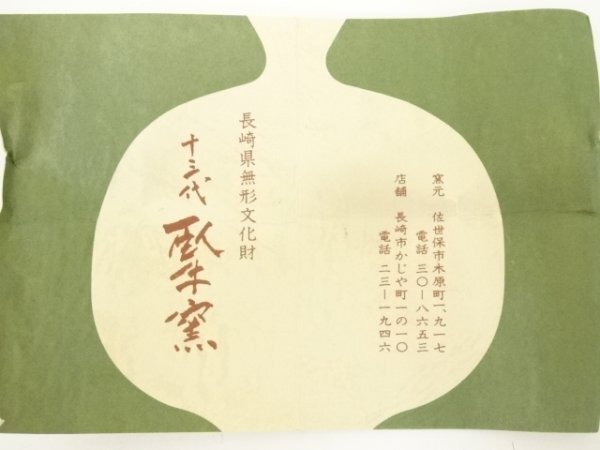 窯元 佐世保市木原町一、九一七
電話 三〇ー八六五三
店舗 長崎市かじや町一の一〇
電話 二三ー一九四六
長崎県無形文化財
十三代 臥牛窯